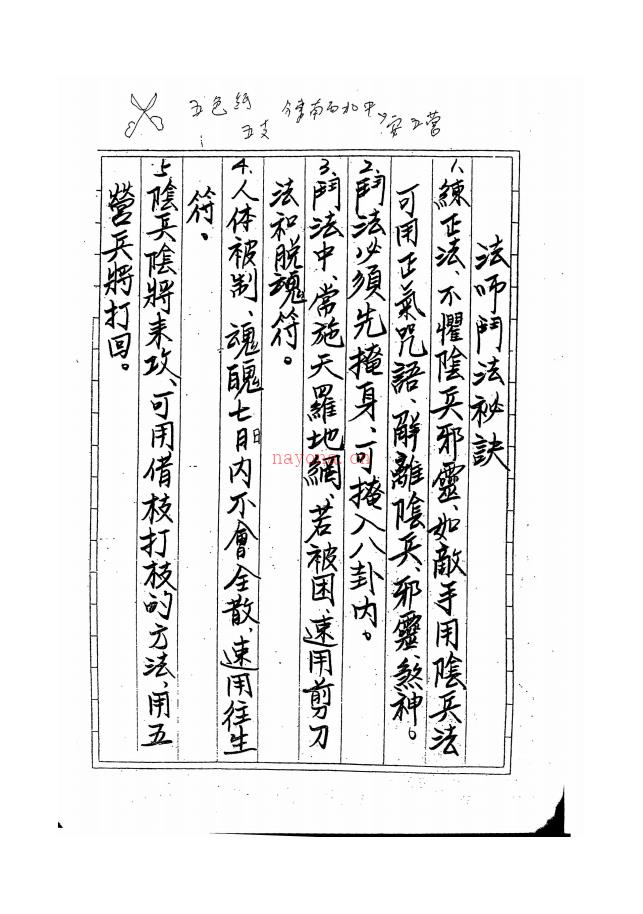 五色紙
五支
東南西北中
安五營
法师鬥法祕訣
1、練正法、不懼陰兵邪靈、如敵手用陰兵法
可用正氣咒語、解離陰兵、邪靈、煞神。
2、鬥法必須先掩身、可掩入八卦內。
3、鬥法中、常施天羅地網、若被困、速用剪刀
法和脫魂符。
4、人体被制、魂魄七日內不會全散、速用往生
日
符。
5、陰兵陰將來攻、可用借枝打枝的方法、用五
營兵將打回。
nayona.cn